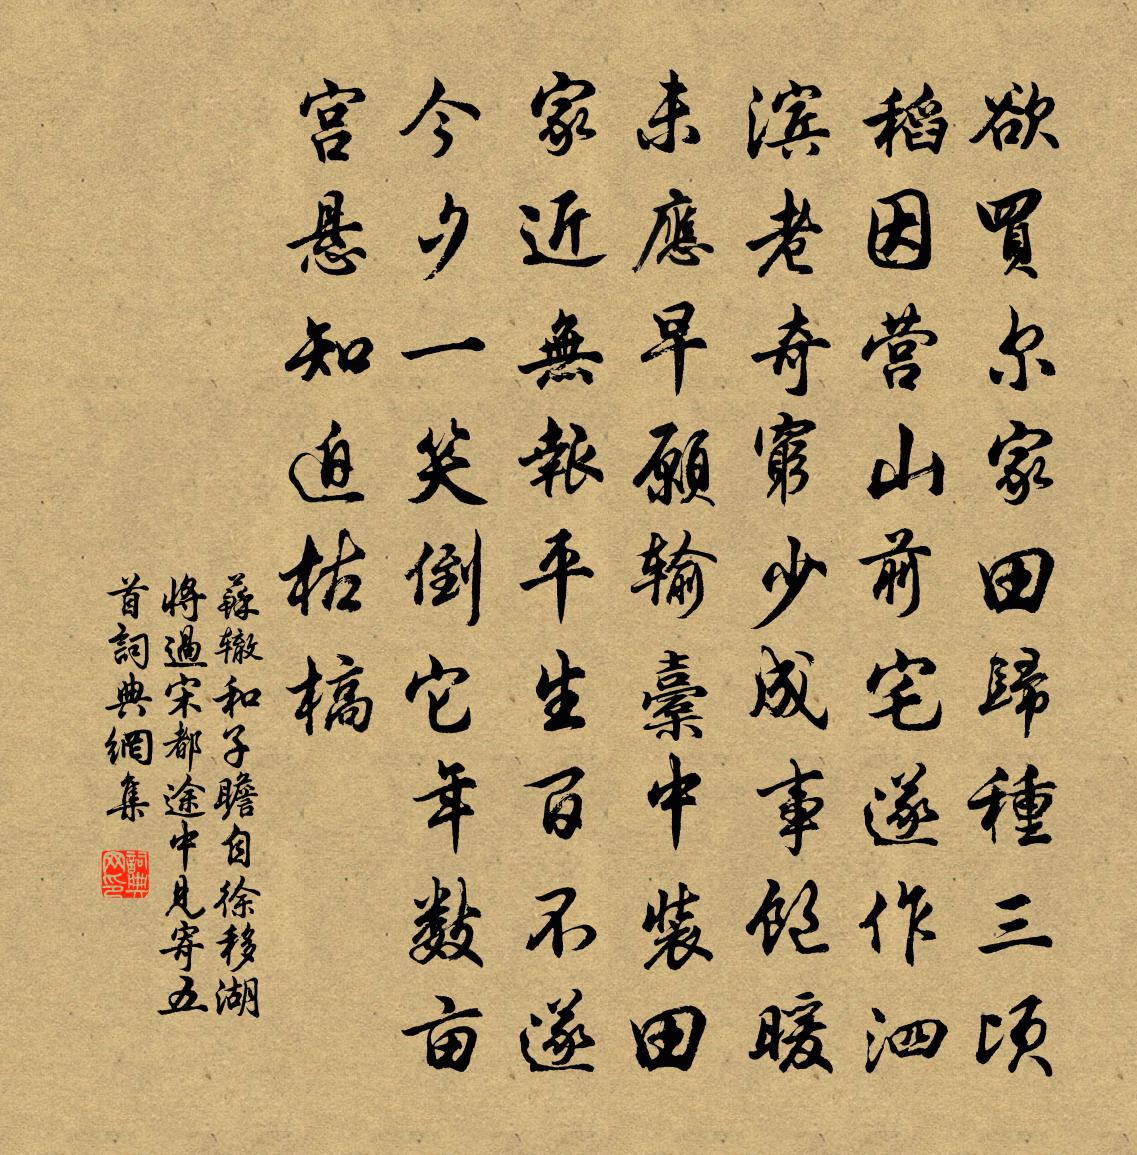 欲買尔家田歸種三頃
稻因营山前宅遂作泗
滨老奇窮少成事飽暖
未應早願输橐中裝田
家近無報平生百不遂
今夕一笑倒它年数亩
宫悬知迫枯槁
蘇辙和子瞻自徐移湖
將過宋都途中見寄五
首詞典網集
詞典网印